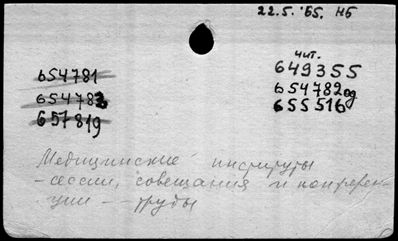 22.5.'65. НБ
чит.
654781
649355
654783
654782од
657819
655516
Медицинские институты
-сессии, совещания и конферен-
ции - труды